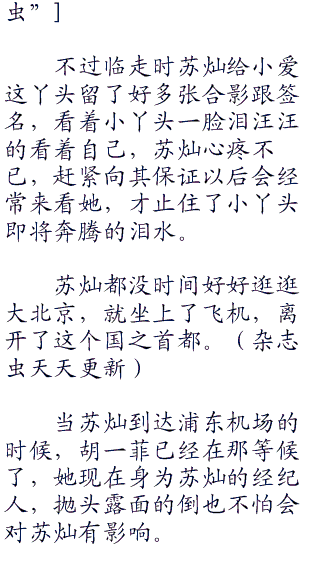 虫”]
不过临走时苏灿给小爱
这丫头留了好多张合影跟签
名，看着小丫头一脸泪汪汪
的看着自己，苏灿心疼不
已，赶紧向其保证以后会经
常来看她，才止住了小丫头
即将奔腾的泪水。
苏灿都没时间好好逛逛
大北京，就坐上了飞机，离
开了这个国之首都。（杂志
虫天天更新）
当苏灿到达浦东机场的
时候，胡一菲已经在那等候
了，她现在身为苏灿的经纪
人，抛头露面的倒也不怕会
对苏灿有影响。